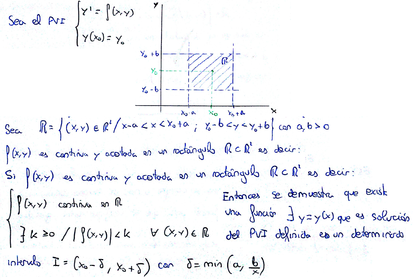 Sea el PVI { y' = f(x,y)
y(x₀) = y₀
y
y₀+b
y₀
y₀-b
R
x₀-a x₀ y₀+a x
Sea R = {(x,y) ∈ R² / x-a < x < y₀+a ; y₀-b < y < y₀+b} con a,b > 0
f(x,y) es continua y acotada en un rectángulo R ⊂ R² es decir:
Si f(x,y) es continua y acotada en un rectángulo R ⊂ R² es decir:
{ f(x,y) continua en R
∃ k ≥ 0 / |f(x,y)| < k ∀ (x,y) ∈ R
Entonces se demuestra que existe
una función ∃ y=y(x) que es solución
del PVI definida en un determinado
intervalo I = (x₀-δ, x₀+δ) con δ = min (a, b/k)